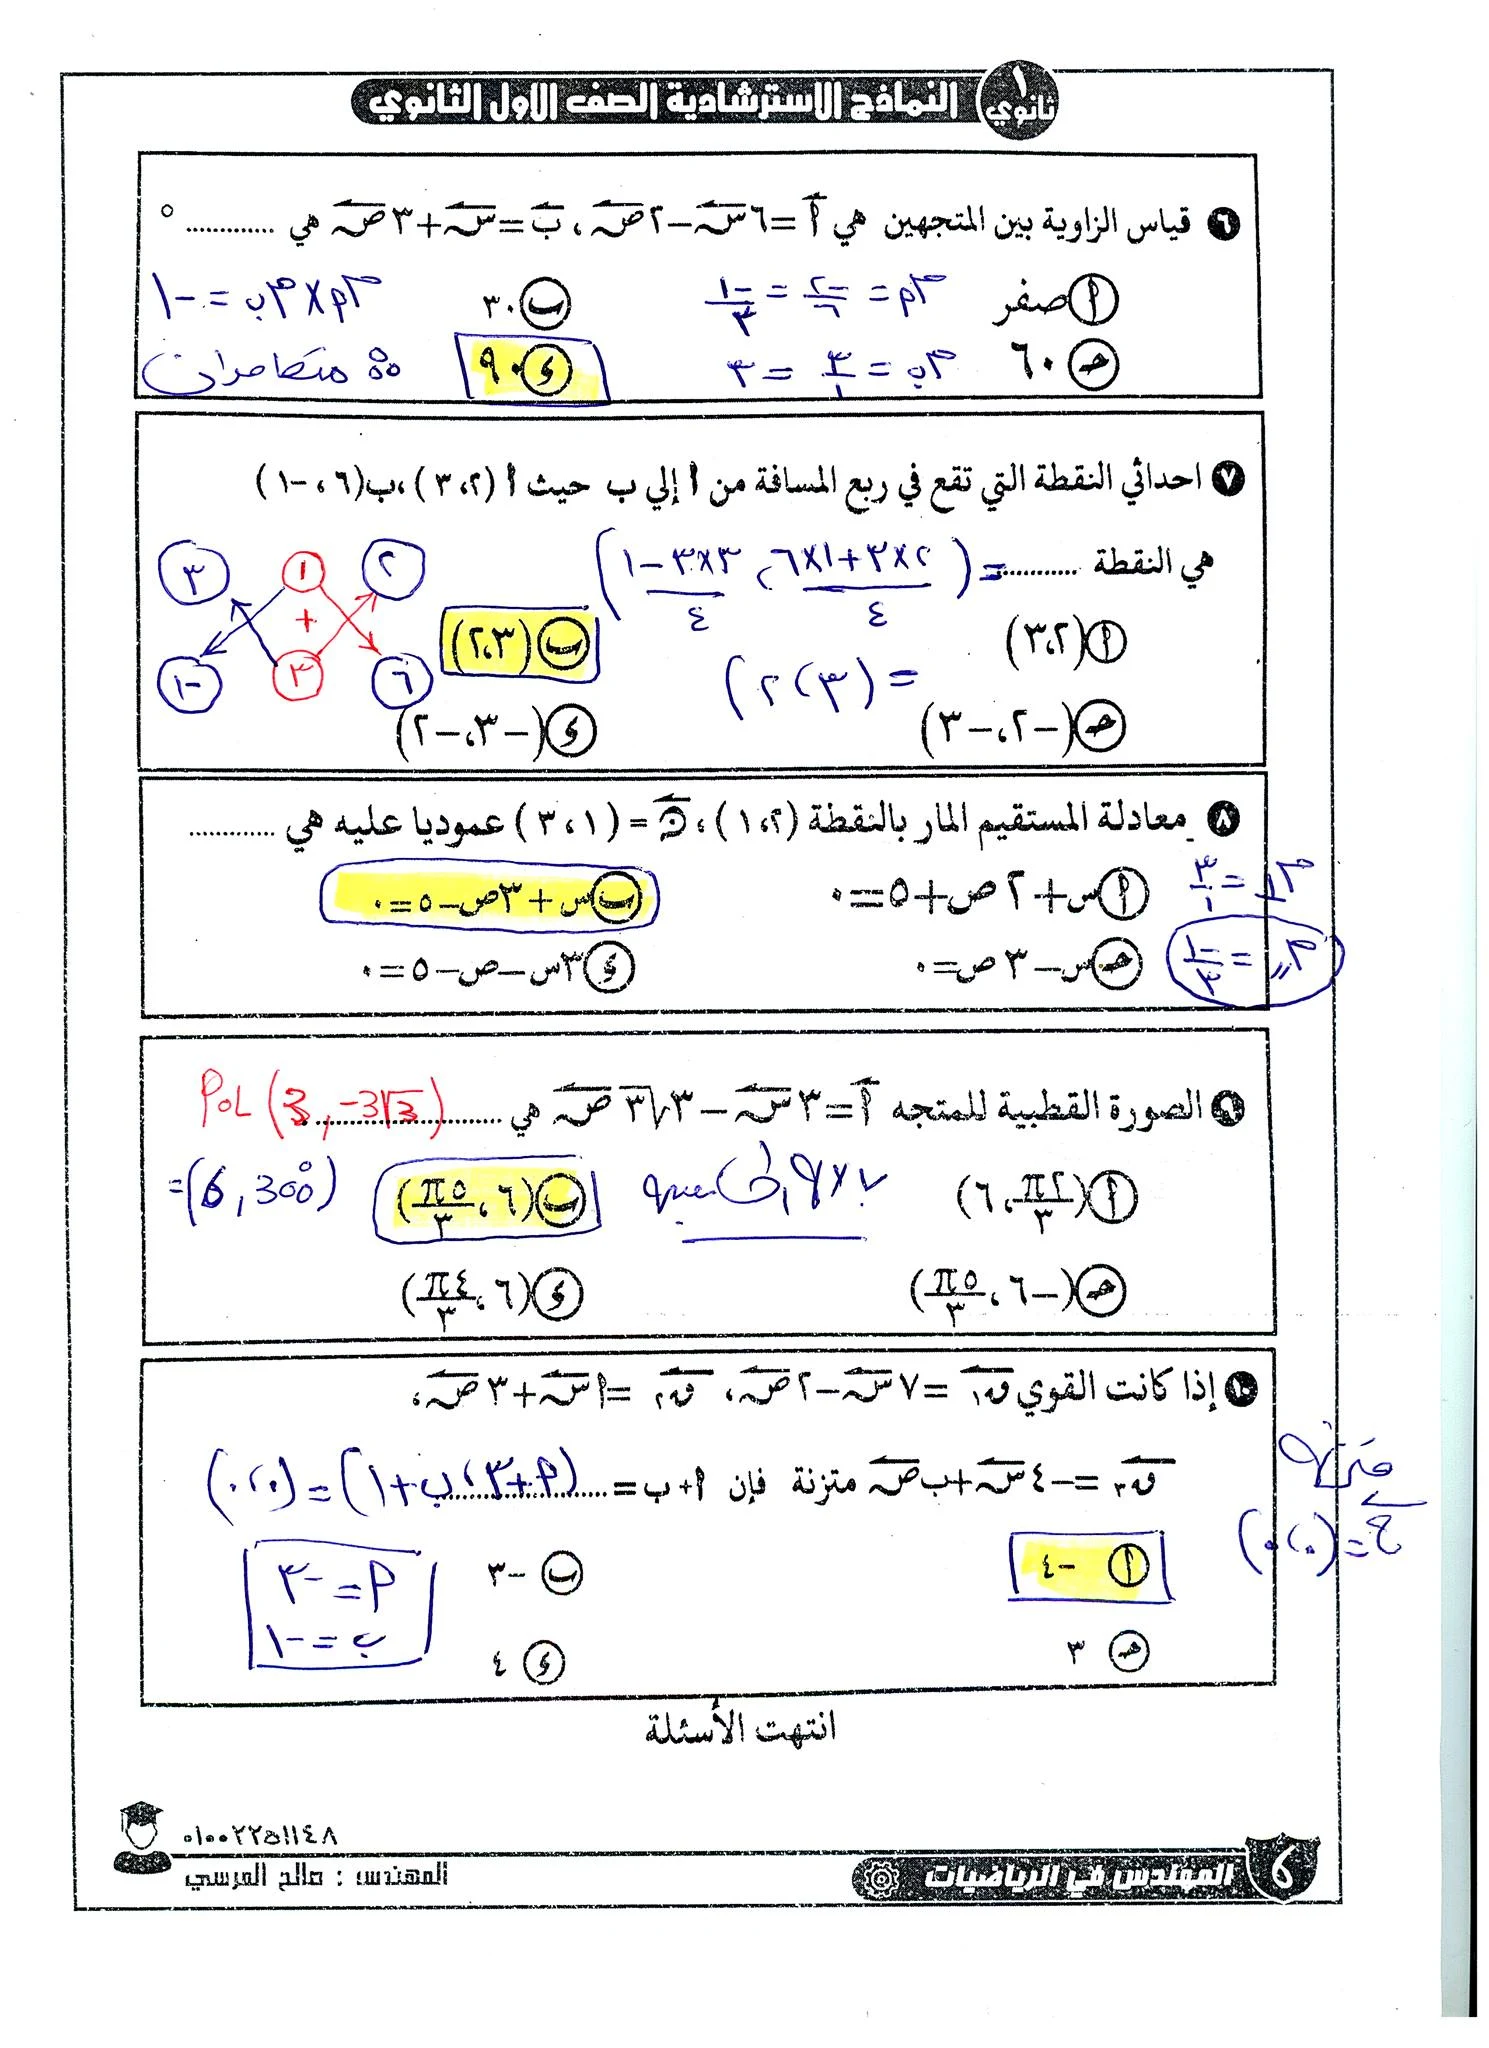 النماذج الاسترشادية الصف الاول الثانوي
١ ثانوي
٦ قياس الزاوية بين المتجهين هي أ = ٦س − ٢ص ، ب = س + ٣ص هي .............. °
أ صفر م أ = −٢/٦ = −١/٣ ب ٣٠ م أ × م ب = −١
حـ ٦٠ م ب = ٣/١ = ٣ د ٩٠ ∴ متعامدان
٧ احداثي النقطة التي تقع في ربع المسافة من أ إلي ب حيث أ (٢، ٣)، ب(٦، −١)
هي النقطة ............ = ((٢×٣+١×٦)/٤ ، (٣×٣−١)/٤)
٣ ١ ٢
+
−١ ٣ ٦
أ (٣،٢) ب (٢،٣)
= (٣، ٢)
حـ (−٢، −٣) د (−٣، −٢)
٨ معادلة المستقيم المار بالنقطة (٢، ١)، ن = (١، ٣) عموديا عليه هي ..............
أ س + ٢ص + ٥ = ٠ ب س + ٣ص − ٥ = ٠
م⊥ = ٣/١
حـ س − ٣ص = ٠ د ٣س − ص − ٥ = ٠
م// = −١/٣
٩ الصورة القطبية للمتجه أ = ٣س − ٣√٣ص هي ..............................
POL (3, −3√3)
أ (٦، ٢π/٣) ب (٦، ٥π/٣)
= (6, 300°)
حـ (−٦، ٥π/٣) د (٦، ٤π/٣)
١٠ إذا كانت القوي ق١ = ٧س − ٢ص، ق٢ = أس + ٣ص،
ق٣ = −٤س + ب ص متزنة فإن أ + ب = .............. (أ+٣، ب+١) = (٠،٠)
متزنة
ح = (٠،٠)
أ −٤ ب −٣
أ = −٣
ب = −١
حـ ٣ د ٤
انتهت الأسئلة
٠١٠٠٢٢٥١١٤٨
المهندس : صالح المرسي
المهندس في الرياضيات
٦